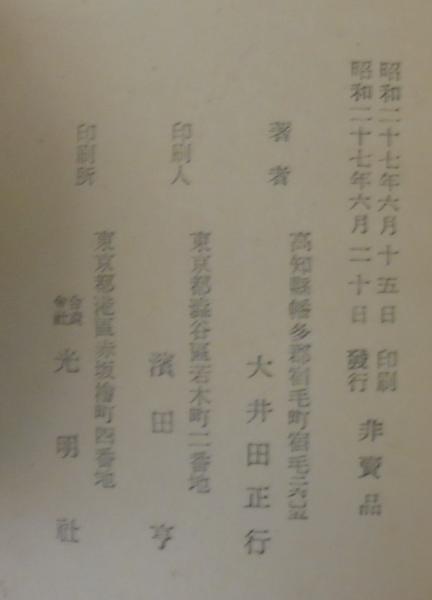 昭和二十七年六月十五日 印刷
昭和二十七年六月二十日 發行
非賣品
高知縣幡多郡宿毛町宿毛
著者 大井田正行
東京都澁谷區若木町二番地
印刷人 濱田亨
東京都港區赤坂檜町四番地
印刷所 合資會社 光明社